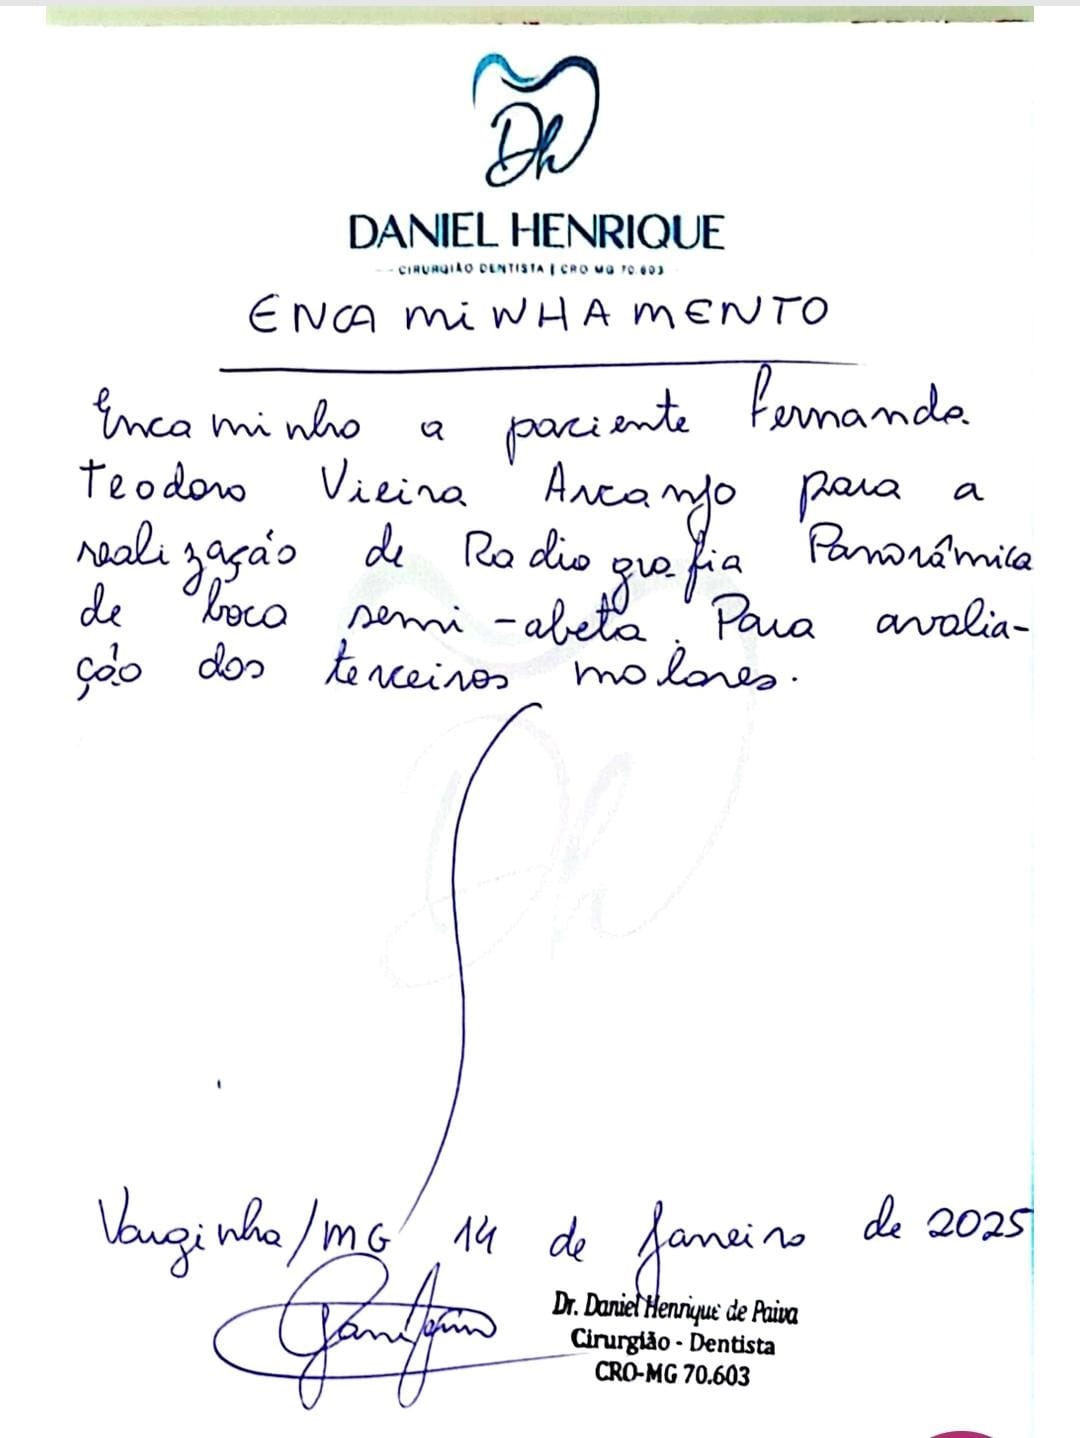 Dh
DANIEL HENRIQUE
CIRURGIÃO DENTISTA | CRO MG 70.603
ENCAMINHAMENTO
Encaminho a paciente Fernanda
Teodoro Vieira Arcanjo para a
realização de Radiografia Panorâmica
de boca semi-abeta. Para avalia-
ção dos terceiros molares.
Dh
Varginha/MG 14 de Janeiro de 2025
Dr. Daniel Henrique de Paiva
Cirurgião - Dentista
CRO-MG 70.603